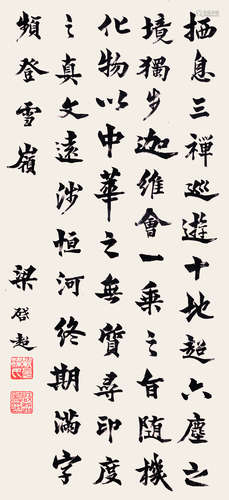 栖息三禪巡遊十地超六塵之
境獨步迦維會一乘之旨隨機
化物以中華之無質尋印度
之真文遠涉恒河終期滿字
頻登雪嶺
梁啓超